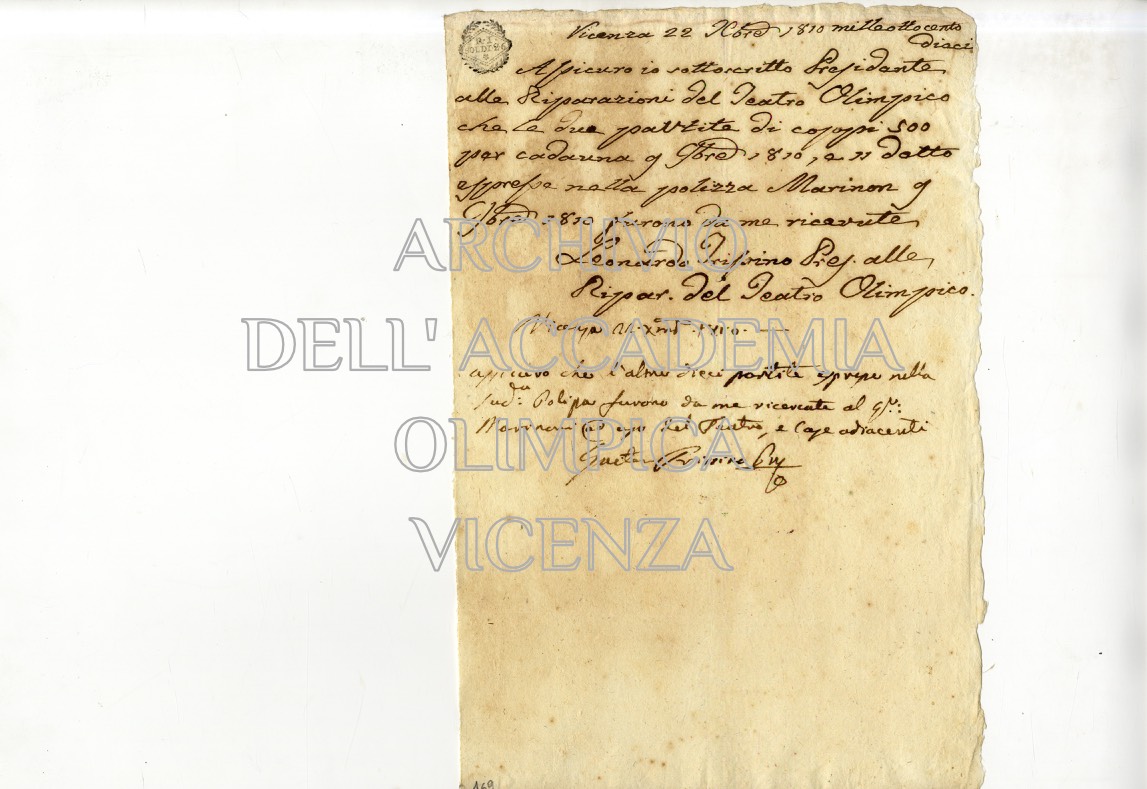 Vicenza 22 Xbre 1810 milleottocento
dieci
Assicuro io sottoscritto Presidente
alle Riparazioni del Teatro Olimpico
che le due partite di coppi 500
per cadauna 9 9bre 1810, e 11 detto
espresse nella polizza Marinon 9
9bre 1810 furono da me ricevute
Leonardo Trissino Pres. alle
Ripar. del Teatro Olimpico.
1810
assicuro che l'altre dieci partite espresse nella
sud.a Polizza furono da me ricevute al
Marinoni ad uso del Teatro, e Case adiacenti
Trissino
ARCHIVIO
DELL'ACCADEMIA
OLIMPICA
VICENZA
169